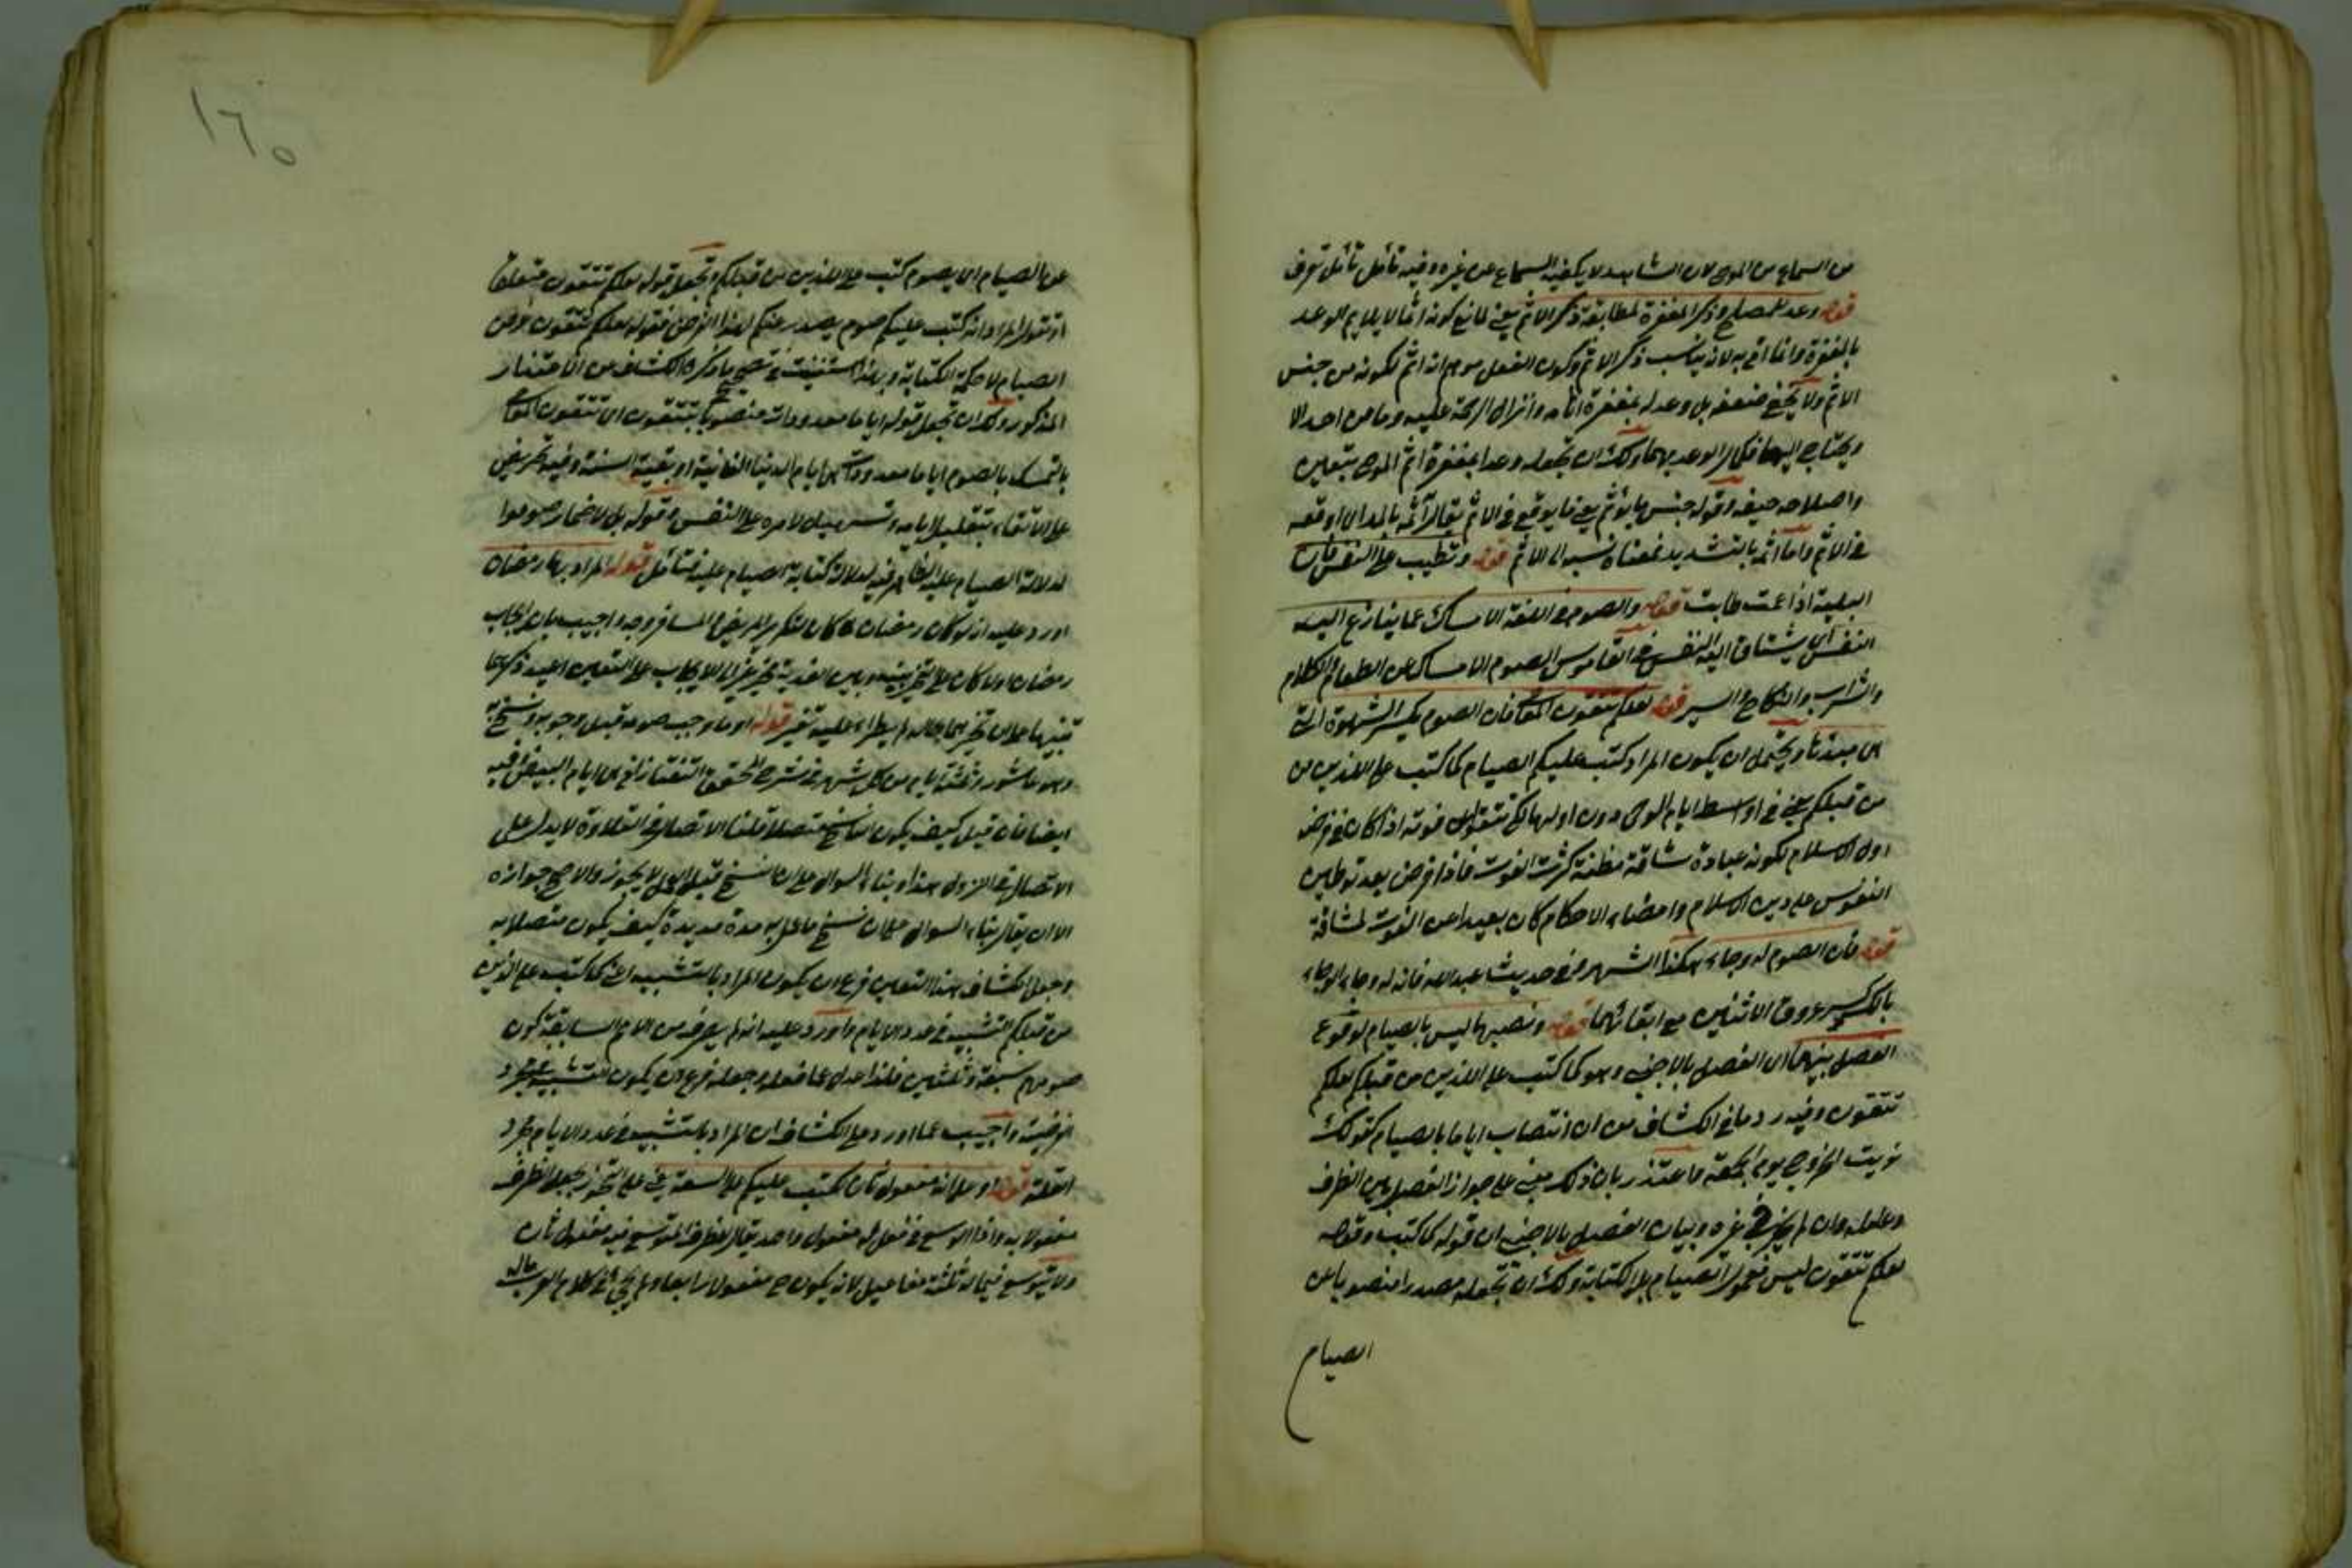 من السماع من الموصي لان الشاهد لا يكفيه السماع من غيره وفيه تأمل تأمل تعرف
قوله وعد للمصلح وذكر المغفرة لمطابقة ذكر الاثم يعني لمانع كونه اثما لا يلايم الوعد
بالمغفرة وانما اتى به لانه يناسب ذكر الاثم وكون الفعل موهم انه اثم لكونه من جنس
الاثم ولا يخفى ضعفه بل وعد له بمغفرة اثامه وانزال الرحمة عليه وما من احد الا
ويحتاج اليهما فكمال الوعد بهما ولك ان تجعله وعدا بمغفرة اثم الموصي بتعيين
واصلاحه حيفه وقوله جنس ما يؤثم يعني ما يوقع في الاثم يقال آثمه بالمد اي اوقعه
في الاثم واما اثمه بالتشديد فمعناه نسبه الى الاثم قوله وتطييب على النفس فان
البلية اذا عمت طابت قوله والصوم في اللغة الامساك عما ينازع اليه
النفس اي يشتاق اليه النفس في القاموس الصوم الامساك عن الطعام والكلام
والشراب والنكاح والسير قوله لعلكم تتقون المعاصي فان الصوم يكسر الشهوة التي
هي مبدئها ويحتمل ان يكون المراد كتب عليكم الصيام كما كتب على الذين من
من قبلكم يعني في اواسط ايام الوحي دون اولها لكي تتقوا فوته اذ لو كان في فرض
اول الاسلام لكونه عبادة شاقة مظنة كثرت الفوت فاذا فرض بعد توطين
النفوس على دين الاسلام وامضاء الاحكام كان بعيدا عن الفوت لمشاقة
قوله فان الصوم له وجاء هكذا اشتهر وفي حديث عبد الله فانه له وجاء الوجاء
بالكسر عروق الانثيين مع ابقائهما قوله ونصبها ليس بالصيام لوقوع
الفصل بينهما اي الفصل بالاجنبي وهو كما كتب على الذين من قبلكم لعلكم
تتقون وفيه رد ما في الكشاف من ان انتصاب اياما بالصيام كقولك
نويت الخروج يوم الجمعة واعتذر بان ذلك مبني على جواز الفصل بين الظرف
وعامله وان لم يجز في غيره وبيان الفصل بالاجنبي ان قوله كما كتب وقوله
لعلكم تتقون ليس معمولا لصيام بل لكتابة ولك ان تجعله مصدرا منصوبا عن
الصيام
١٦٥
عن الصيام اي يصوم كتب على الذين من قبلكم وتجعل قوله لعلكم تتقون متعلقا
او تقول المراد انه كتب عليكم صوم يصدر عنكم لهذا الغرض فقوله لعلكم تتقون غرض
الصيام لا حكمة الكتابة وبهذا استغنيت في تصحيح ما ذكره الكشاف من الاعتذار
المذكور ولك ان تجعل قوله اياما معدودات منصوبا بتتقون اي تتقون المعاصي
بالتمسك بالصوم اياما معدودات هي ايام الدنيا الفانية او بقية السنة وفيه تحريض
على الاتقاء بتقليل ايامه وتسهيل لامره على النفس وقوله بل لاضمار صوموا
لدلالة الصيام عليه الظاهر فيه لدلالة كتابة الصيام عليه فتأمل قوله المراد بها رمضان
اورد عليه انه لو كان رمضان لما كان لتكرير المريض والمسافر وجه واجيب بان ايجاب
رمضان اولا كان على التخيير بينه وبين الفدية فحين غير الى الايجاب على التعيين اعيد ذكرهما
تنبيها على ان تخييرهما بحاله لم يطرأ عليه تغير قوله او ما وجب صومه قبل وجوبه ونسخ به
وهو عاشوراء وثلثة ايام من كل شهر في شرح المحقق التفتازاني هي ايام البيض فيه
ايضا فان قيل كيف يكون الناسخ متصلا قلنا الاتصال في التلاوة لا يدل على
الاتصال في النزول هذا وبناء السوال على ان النسخ قبل العمل لا يجوز والاصح جوازه
الا ان يقال بناء السوال على ان نسخ ما عمل به مدة مديدة كيف يكون متصلا به
وجعل الكشاف هذا التعيين فرع ان يكون المراد بالتشبيه اعني كما كتب على الذين
من قبلكم التشبيه في عدد الايام واورد عليه انه لم يعرف من الامم السابقة كون
صومهم سبعة وثلثين فلذا عدل عما فعله وجعله فرع ان يكون التشبيه في مجرد
الفرضية واجيب عما اورد على الكشاف ان المراد بالتشبيه في عدد الايام مجرد
القلة قوله او على انه مفعول ثان لكتب عليكم على السعة يعني على التجوز بجعل الظرف
مفعولا به واذا توسع في فعل له مفعول واحد يقال للظرف المتوسع فيه مفعول ثان
ولا يتوسع فيما له ثلثة مفاعيل لانه يكون ح مفعولا رابعا ولم يجئ في كلام العرب ماله